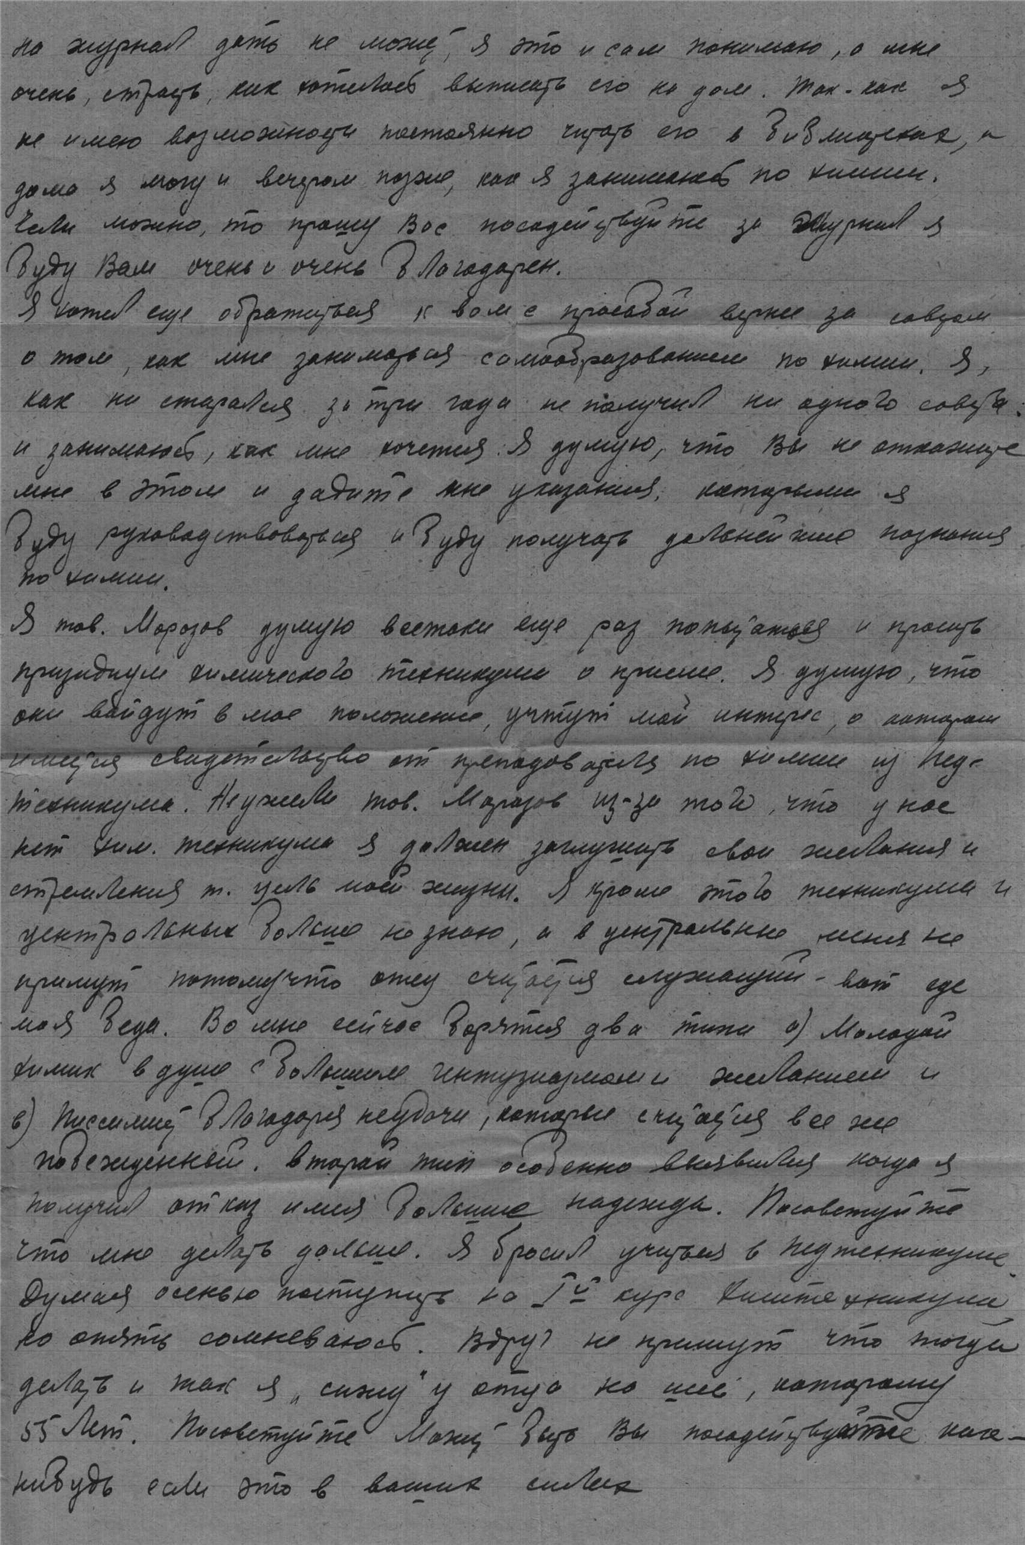 на журнал дать не может, я это и сам понимаю, а мне
очень, страсть, как хотелось выписать его на дом. Так-как я
не имею возможности постоянно читать его в библиотеках, а
дома я могу и вечером позже, как я занимаюсь по химии.
Если можно, то прошу Вас посадействуйте за журнал я
буду Вам очень и очень благодарен.
Я хотел еще обратиться к вам с прозьбой вернее за советом
о том, как мне заниматься самообразованием по химии. Я,
как ни старался за три года не получил ни одного совета.
и занимаюсь, как мне хочется. Я думаю, что Вы не откажите
мне в этом и дадите мне указания, которыми я
буду руководствоваться и буду получать дальнейшие познания
по химии.
Я тов. Морозов думаю всетаки еще раз попытаться и просить
призидиум химического техникума о приеме. Я думаю, что
они войдут в мое положение, учтут мой интерес, о котором
имеется свидетельство от преподователя по химии из Пед-
техникума. Неужели тов. Марозов из-за того, что у нас
нет хим. техникума я должен заглушить свои желания и
стремления т. цель моей жизни. Я кроме этого техникума и
центральных больше не знаю, а в центральные меня не
примут потомучто отец считается служащий - вот где
моя беда. Во мне сейчас борятся два типа а) Молодой
химик в душе с большим интузиазмом и желанием и
в) Писсимист благодаря неудачи, которые считается все же
побежденный. второй тип особенно выявился когда я
получил отказ имея большие надежды. Посоветуйте
что мне делать дальше. Я бросил учиться в педтехникуме.
Думая осенью поступить на I й курс химтехникума
но опять сомневаюсь. Вдруг не примут что тогда
делать и так я „сижу" у отца на шее, которому
55 лет. Посоветуйте Может быть Вы посадействуйте как-
нибудь если это в ваших силах